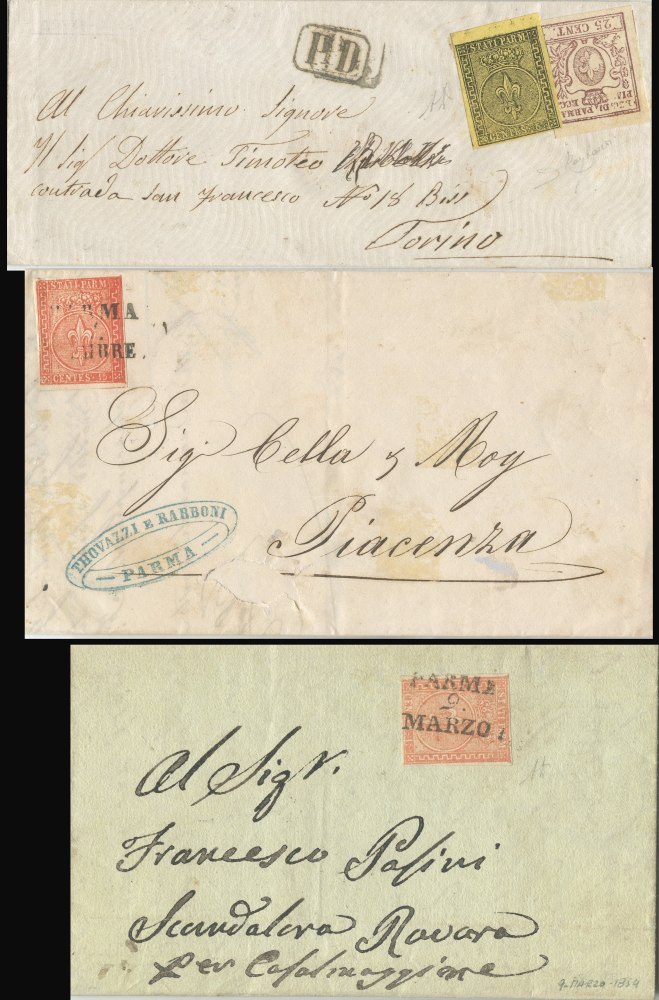 P.D.
STATI PARM
CENTES.
25 CENT.
DI PARMA
PIA ECC.
Al Chiarissimo Signore
Il Sig Dottore Timoteo
contrada san Francesco No 18 Biss
Torino
STATI PARM
CENTES. 15
MA
BRE.
Sig. Cella & Moy
Piacenza
THOVAZZI E RABBONI
— PARMA —
PARMA
9
MARZO
STATI PARM
Al Sigr.
Francesco Pasini
Scandolara Ravara
per Casalmaggiore
9-MARZO-1854